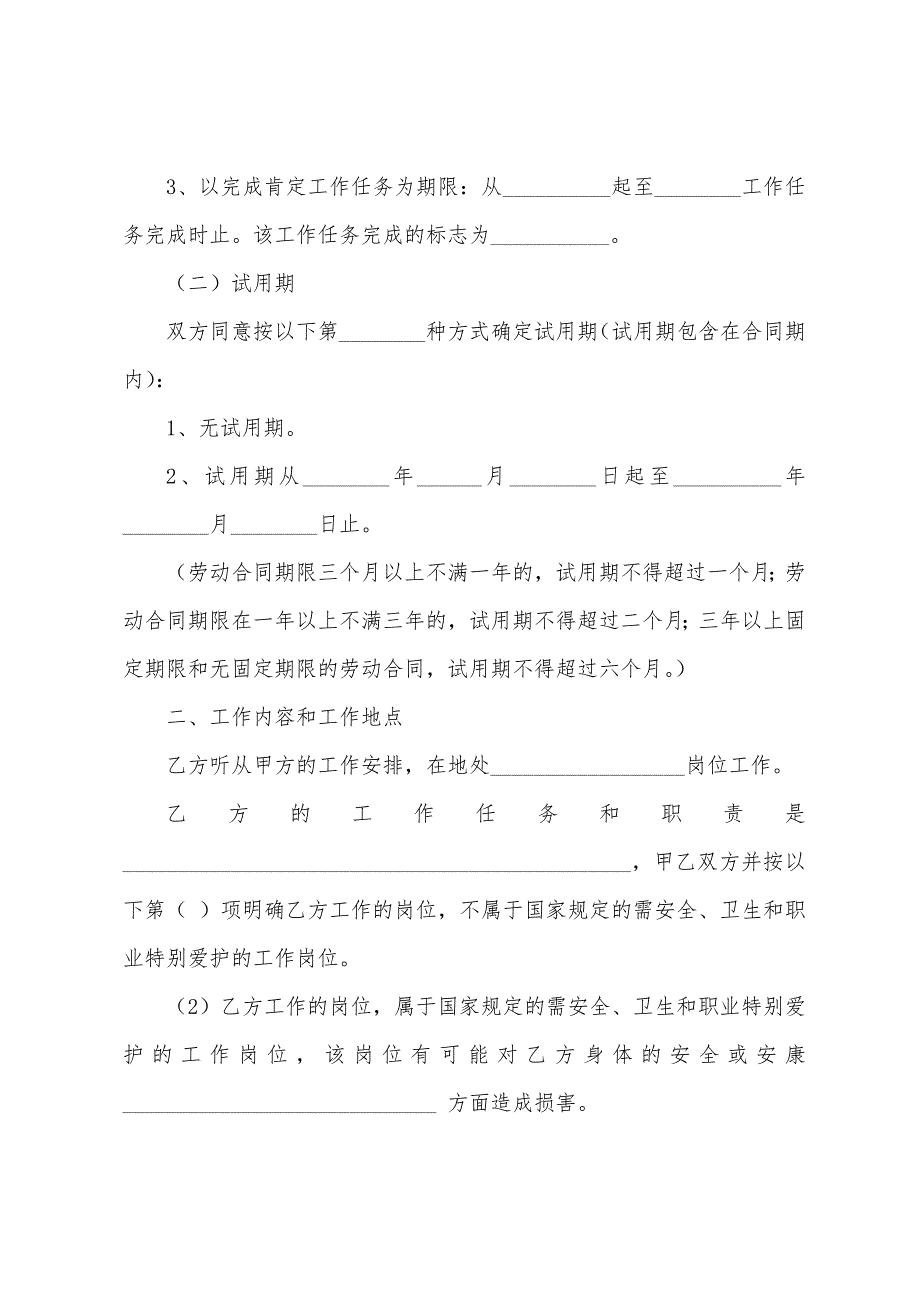 3、以完成肯定工作任务为期限：从__________起至________工作任
务完成时止。该工作任务完成的标志为___________。
（二）试用期
双方同意按以下第________种方式确定试用期(试用期包含在合同期
内)：
1、无试用期。
2、试用期从________年______月________日起至__________年
________月________日止。
（劳动合同期限三个月以上不满一年的，试用期不得超过一个月；劳
动合同期限在一年以上不满三年的，试用期不得超过二个月；三年以上固
定期限和无固定期限的劳动合同，试用期不得超过六个月。）
二、工作内容和工作地点
乙方听从甲方的工作安排，在地处__________________岗位工作。
乙方的工作任务和职责是
_______________________________________________，甲乙双方并按以
下第（ ）项明确乙方工作的岗位，不属于国家规定的需安全、卫生和职
业特别爱护的工作岗位。
（2）乙方工作的岗位，属于国家规定的需安全、卫生和职业特别爱
护的工作岗位，该岗位有可能对乙方身体的安全或安康
_____________________________ 方面造成损害。